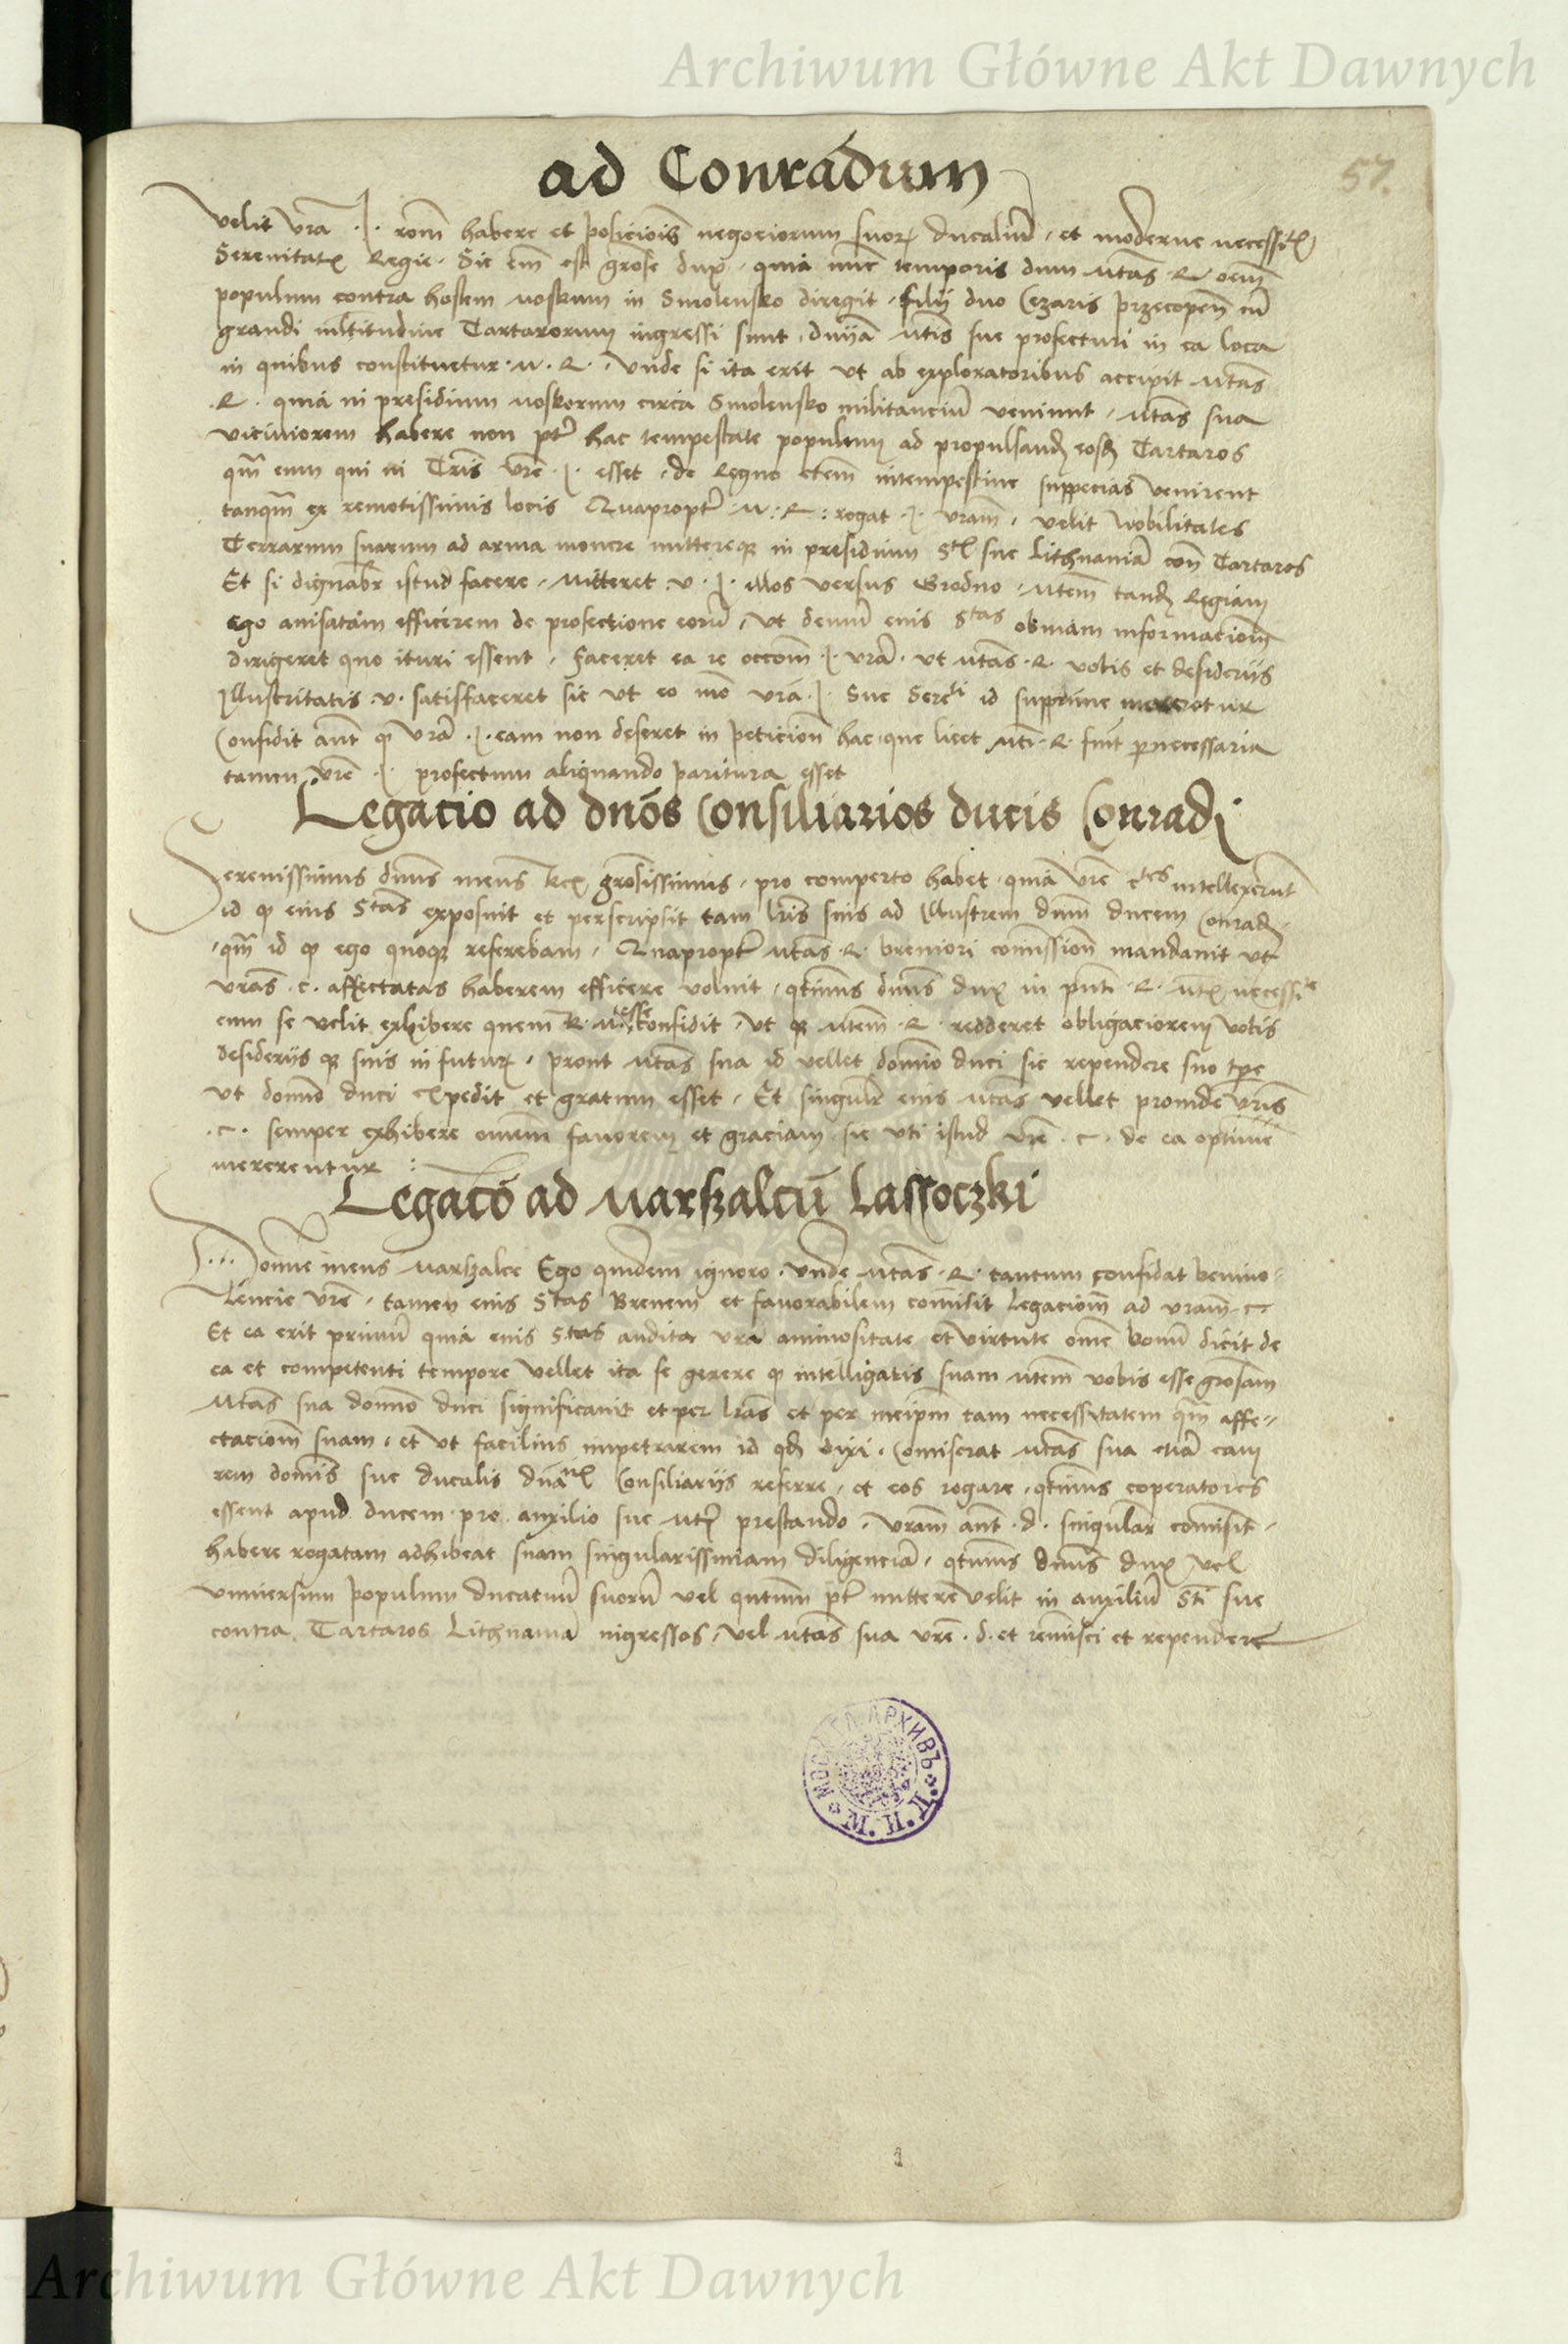 Archiwum Główne Akt Dawnych
57.
ad Conradum
velit vrã .I. rom̃ habere et posicioĩs negociorum suoꝝ ducaliũ, et moderne necessit
Serenitat Regie. Sic em̃ est grose dux. quia nunc temporis dum Mtas .R. oem̃
populum contra hostem Moskum in Smolensko diregit, filij duo Cezaris przecopen̄ cũ
grandi multitudine Tartarorum ingressi sunt, dnijã Mtis sue profecturi in ea loca
in quibus constituetur .M.R. Vnde si ita erit ut ab exploratoribus accipit Mtas
.R. quia in presidium Moskorum circa Smolensko militanciũ veniunt, Mtas sua
viciniorem habere non pt̃ hac tempestate populum ad propulsand eosd Tartaros
qm̃ eum qui in Tris vrẽ .I. esset, de Regno etem̃ intempestiue suppecias venirent
tanqm̃ ex remotissimis locis Quapropt̃ :M:R: rogat .I. vram̃, velit Nobilitates
Terrarum suarum ad arma mouere mittereqꝫ in presidium St sue Lithuaniã con̄ Tartaros
Et si dignabr istud facere, Mitteret .v.I. illos versus Grodno, Mtem̃ tand Regiam
Ego auisatam efficerem de profectione eorũ, vt demũ eius Stas obuiam informaciom̃
dirigeret quo ituri essent, faceret ea re occom̃ .I. vrã. vt Mtas .R. votis et desiderijs
Illustritatis .v. satisfaceret sic vt eo mõ vrã .I. Sue Sercti id supprime mereretur
Confidit aut̃ qꝫ vrã .I. eam non deseret in peticion̄ hac, que licet Mti .R. sint pernecessaria
tamen vrẽ .I. profectum aliquando paritura esset
Legacio ad dnõs Consiliarios ducis Conradi
Serenissimus dnũs meus Rex grosissimus, pro comperto habet, quia vrẽ ctes intellexerunt
id qꝫ eius Stas exposuit et perscripsit tam lrĩs suis ad Illustrem dnm̃ ducem Conrad
qm̃ id qꝫ ego quoqꝫ referebam, Quapropt̃ Mtas .R. breuiori comission̄ mandauit vt
vrãs .c. affectatas haberem efficere voluit, qtinus dnũs dux in pnti .R. Mt necessite
eum se velit exhibere quem R. M. esse confidit, vt qꝫ Mtem̃ .R. redderet obligaciorem votis
desiderijs qꝫ suis in futuꝝ, prout Mtas sua id vellet domĩo duci sic rependere suo tpẽ
vt domino duci expedit et gratum esset, Et singulr̃ eius Mtas vellet proinde vrĩs
.c. semper exhibere omem̃ fauorem et graciam sic vti istud vrẽ .c. de ea optime
mererentur :
Legacõ ad Marszalcũ Lassoczki
Domĩe meus Marszalce Ego quidem ignoro, Vnde Mtas .R. tantum confidat beniuo-
lencie vrẽ, tamen eius Stas Breuem et fauorabilem comisit legaciom̃ ad vram̃ .c.
Et ea erit primũ quia eius Stas audita vrã animositate et virtute omẽ bonũ dicit de
ea et competenti tempore vellet ita se gerere qꝫ intelligatis suam Mtem̃ vobis esse grosam
Mtas sua domno duci significauit et per lrãs et per meipm̃ tam necessitatem qm̃ affe-
ctaciom̃ suam, et vt facilius impetrarem id qd dixi, Comiserat Mtas sua etiã eam
rem domĩs sue ducalis Consiliarijs referre, et eos rogare, qtinus coperatores
essent apud ducem pro auxilio sue Mti prestando, vram̃ aut̃ .d. singular̃ comisit
habere rogatam adhibeat suam singularissimam diligenciã, qtinus dnũs dux vel
vniuersum populum ducatuũ suorũ vel qntum̃ pt̃ mittere velit in auxiliũ Sti sue
contra Tartaros Lithuaniã ingressos, vel Mtas sua vrẽ .d. et remisci et rependere
Archiwum Główne Akt Dawnych